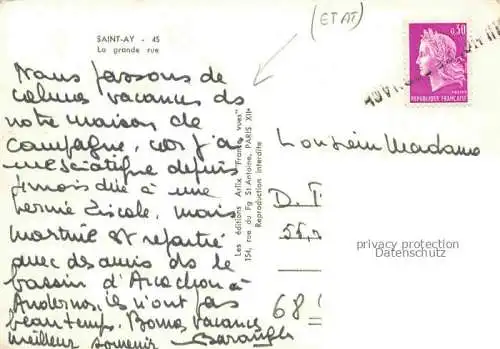 SAINT-AY - 45
La grande rue
(ETAT)
0,30
REPUBLIQUE FRANÇAISE
Nous passons de
calmes vacances ds
notre maison de
campagne, car j'ai
une sciatique depuis
4 mois dûe à une
hernie discale, mais
martial est reparti
avec des amis ds le
bassin d'Arcachon à
Andernos, ils n'ont pas
beau temps. Bonnes vacances
meilleur souvenir
Les éditions Arlix "Frances vues"
154, rue du Fg St-Antoine, PARIS XIIe
Reproduction interdite
Monsieur Madame
D.
55,
68
privacy protection
Datenschutz